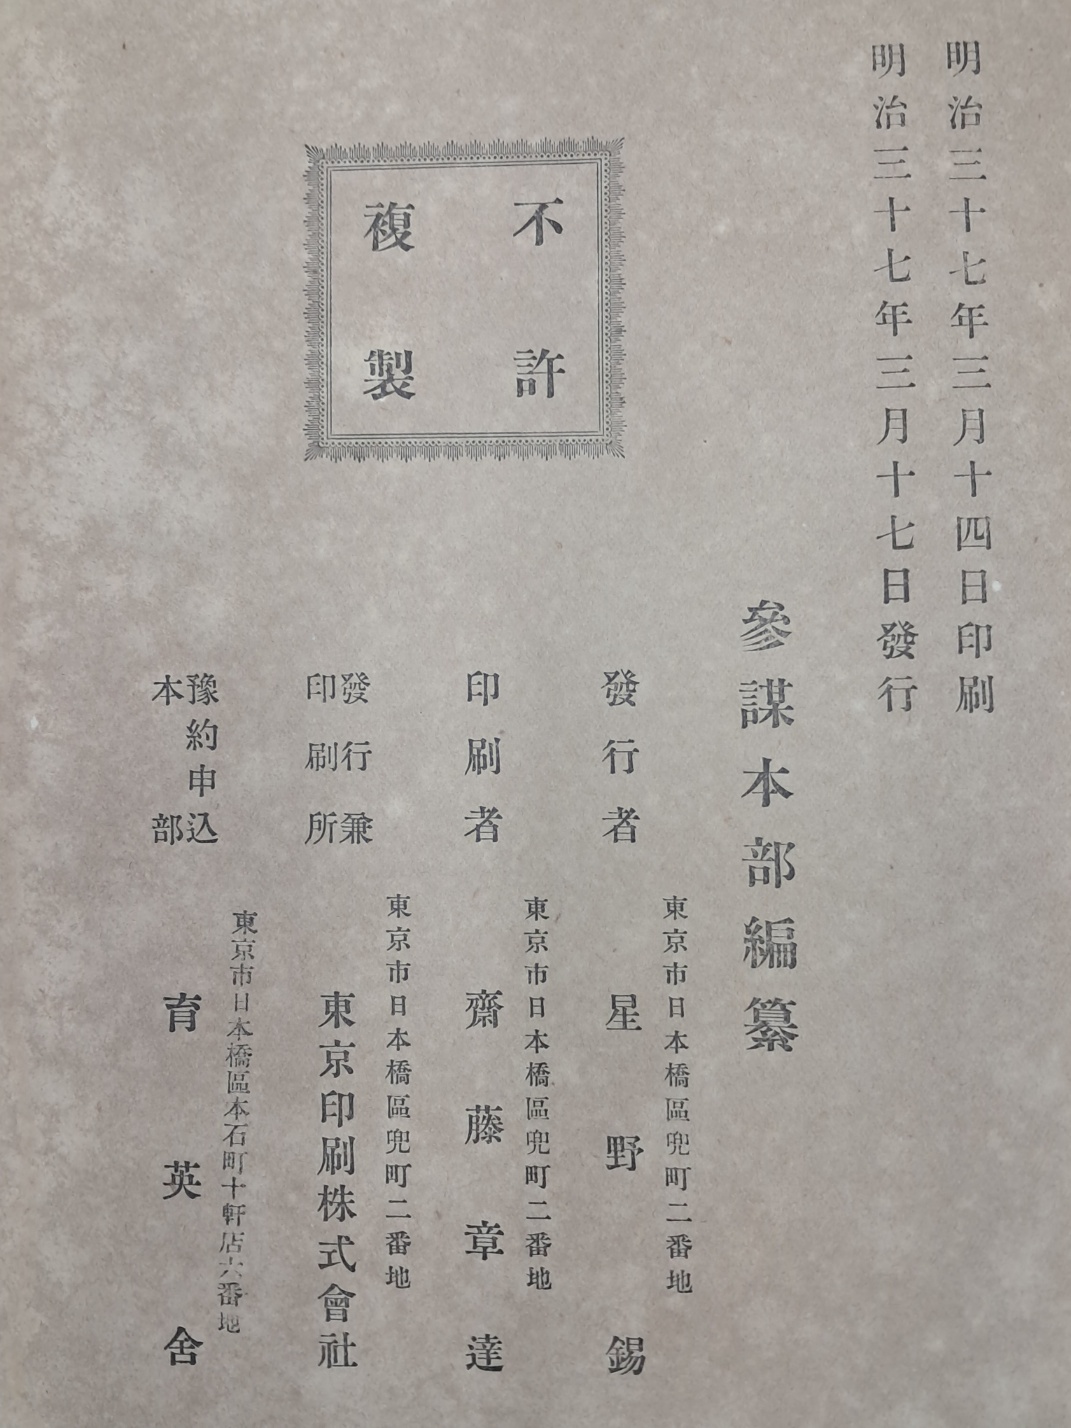 明治三十七年三月十四日印刷
明治三十七年三月十七日發行
參謀本部編纂
不許
複製
東京市日本橋區兜町二番地
發行者
星野錫
東京市日本橋區兜町二番地
印刷者
齋藤章達
東京市日本橋區兜町二番地
發行兼
印刷所
東京印刷株式會社
東京市日本橋區本石町十軒店六番地
豫約申込
本部
育英舍